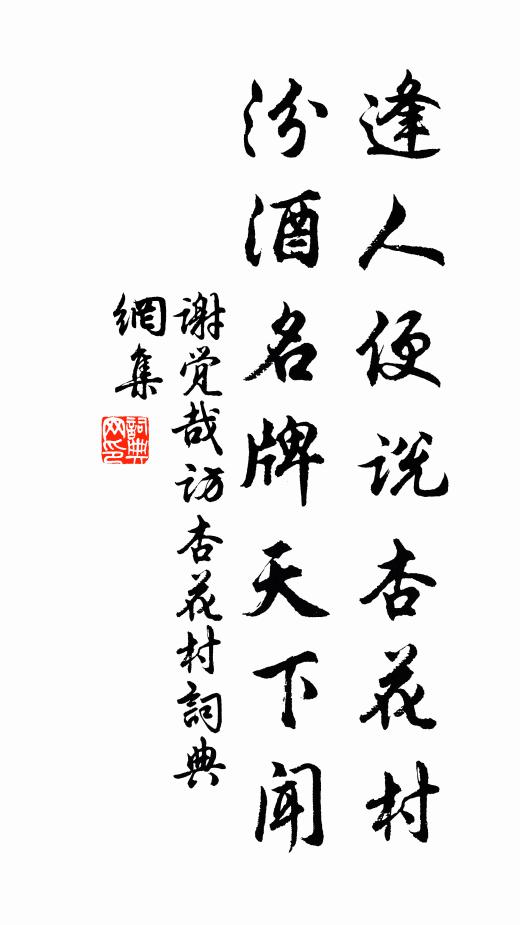 逢人便说杏花村
汾酒名牌天下闻
谢觉哉访杏花村詞典
網集
詞典
网印